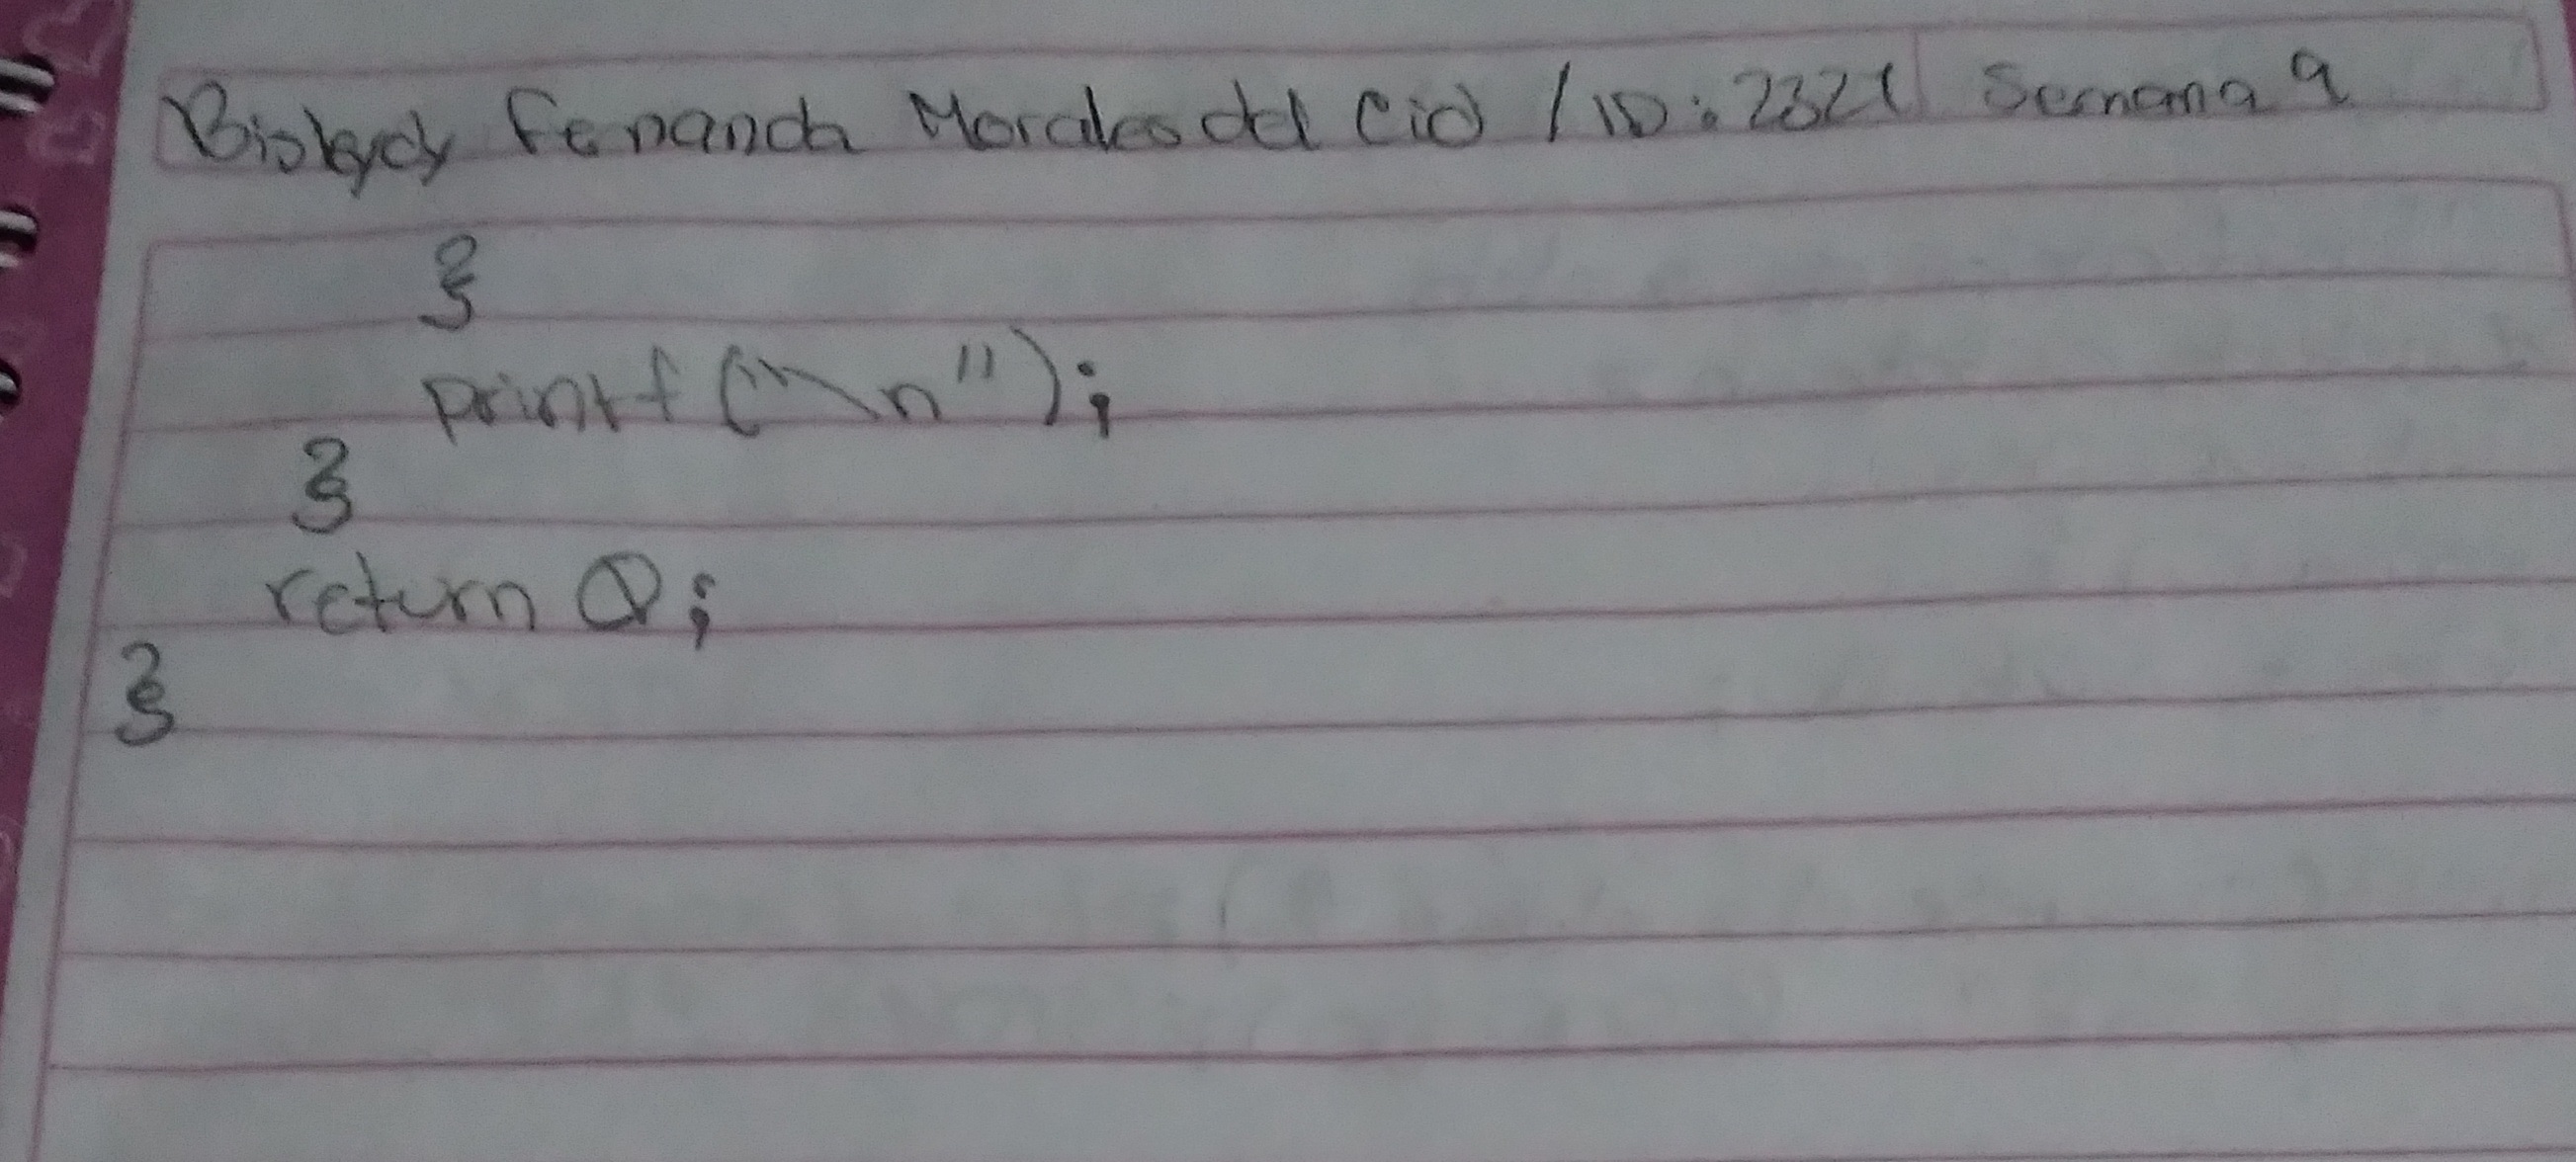 Fernanda Morales del Cid / ID: 2321 Semana 9
}
printf("\n");
}
return 0;
}